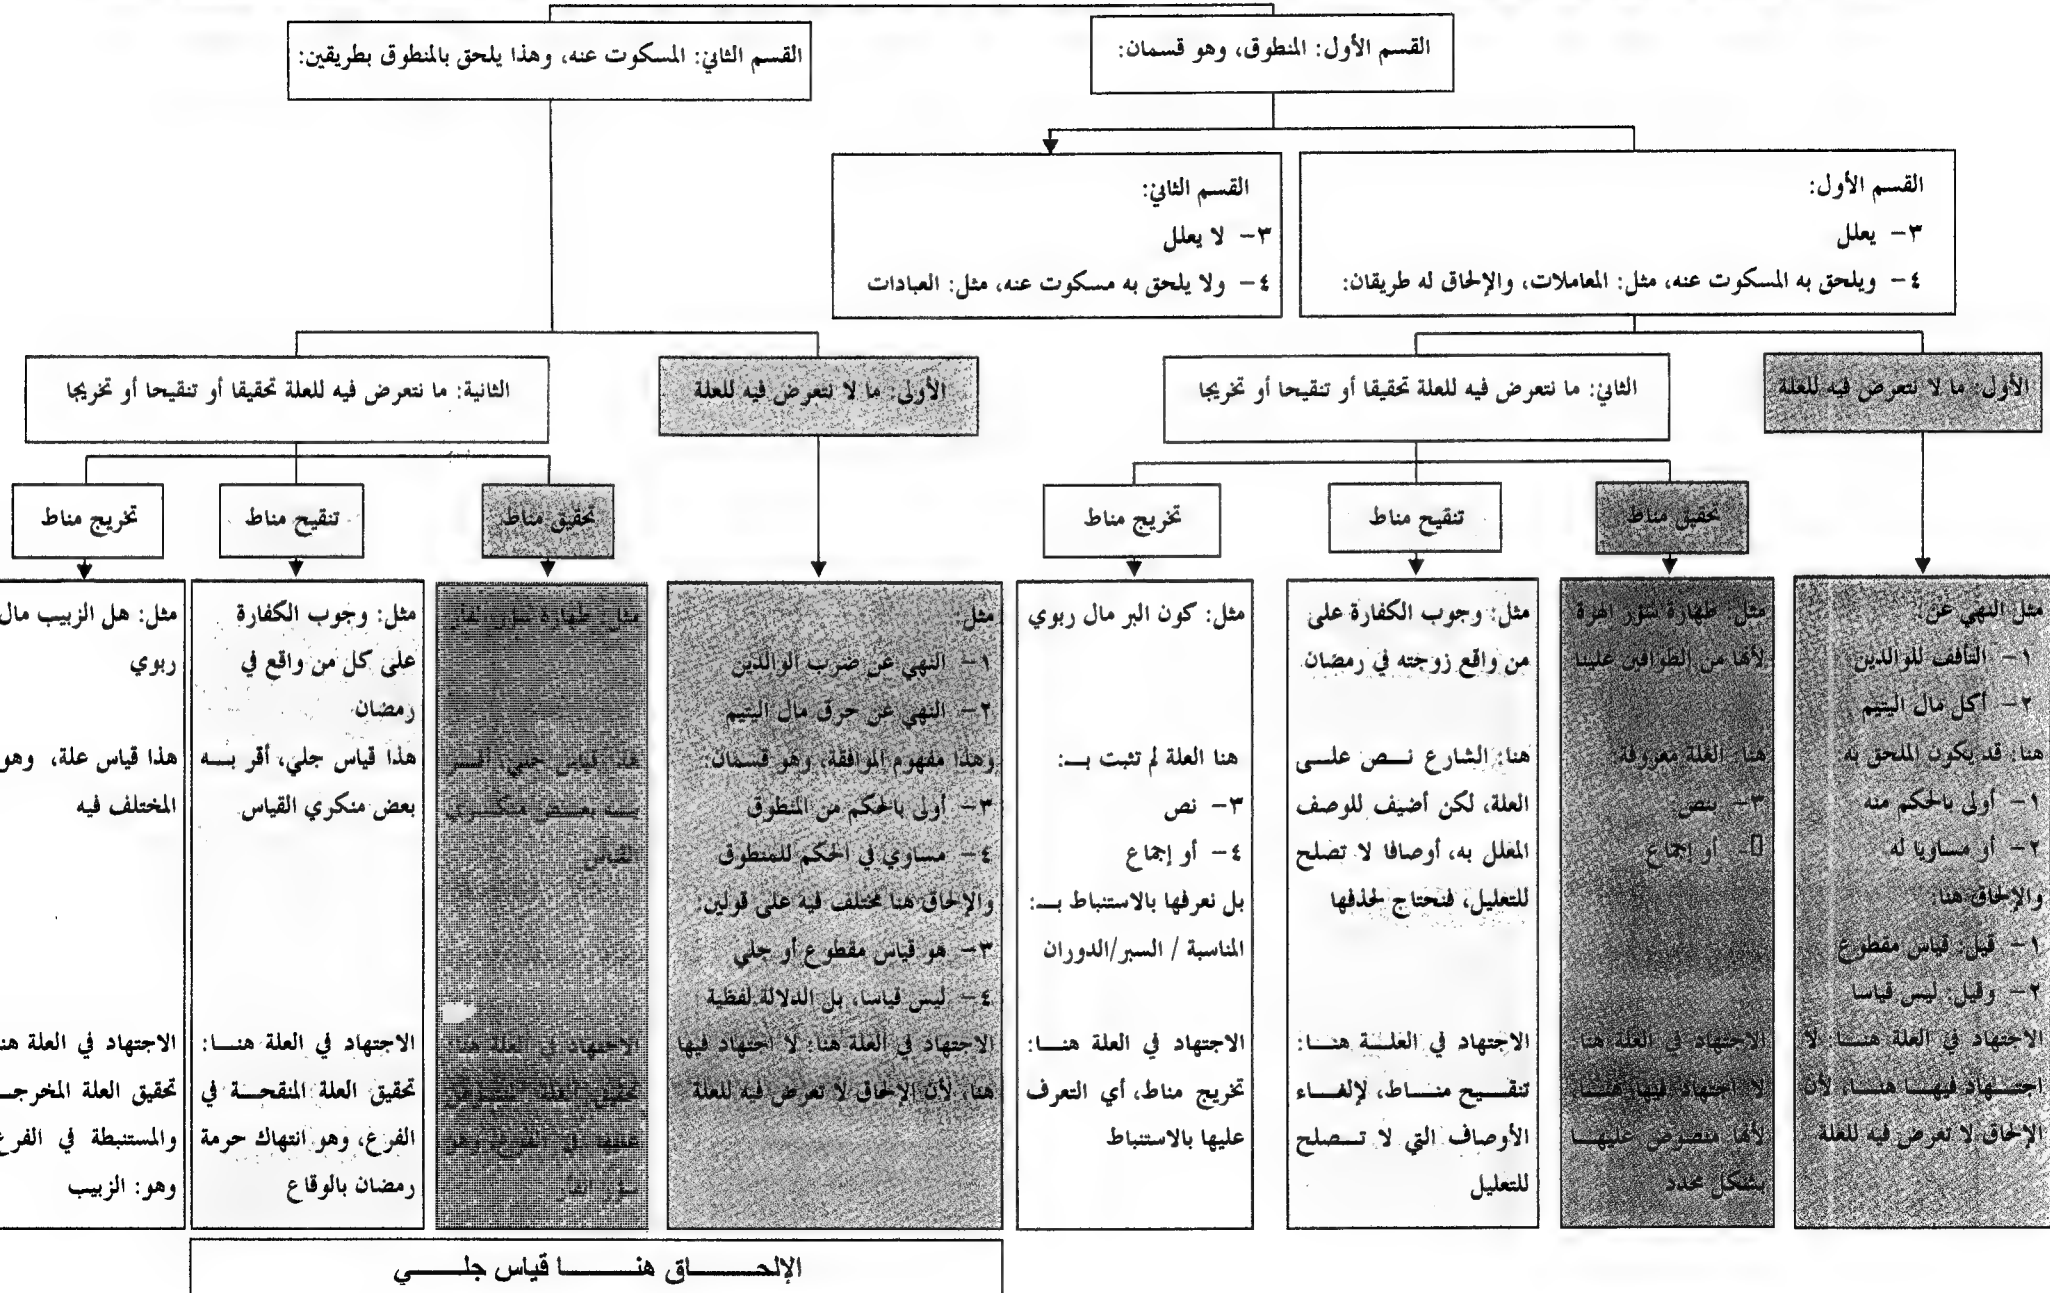 القسم الأول: المنطوق، وهو قسمان:
القسم الثاني: المسكوت عنه، وهذا يلحق بالمنطوق بطريقين:
القسم الأول:
٣- يعلل
٤- ويلحق به المسكوت عنه، مثل: المعاملات، والإلحاق له طريقان:
القسم الثاني:
٣- لا يعلل
٤- ولا يلحق به مسكوت عنه، مثل: العبادات
الأول: ما لا نتعرض فيه للعلة
الثاني: ما نتعرض فيه للعلة تحقيقا أو تنقيحا أو تخريجا
الأولى: ما لا نتعرض فيه للعلة
الثانية: ما نتعرض فيه للعلة تحقيقا أو تنقيحا أو تخريجا
تحقيق مناط
تنقيح مناط
تخريج مناط
تحقيق مناط
تنقيح مناط
تخريج مناط
مثل النهي عن:
١- التأفف للوالدين
٢- أكل مال اليتيم
هنا: قد يكون الملحق به
١- أولى بالحكم منه
٢- أو مساويا له
والإلحاق هنا:
١- قيل: قياس مقطوع
٢- وقيل: ليس قياسا
الاجتهاد في العلة هنا: لا
اجتهاد فيها هنا، لأن
الإلحاق لا تعرض فيه للعلة
مثل: طهارة سؤر الهرة
لأنها من الطوافين علينا
هنا: العلة معروفة
٣- بنص
أو إجماع
الاجتهاد في العلة هنا:
لا اجتهاد فيها هنا،
لأنها منصوص عليها
بشكل محدد
مثل: وجوب الكفارة على
من واقع زوجته في رمضان
هنا: الشارع نص على
العلة، لكن أضيف للوصف
المعلل به، أوصافا لا تصلح
للتعليل، فنحتاج لحذفها
الاجتهاد في العلة هنا:
تنقيح مناط، لإلغاء
الأوصاف التي لا تصلح
للتعليل
مثل: كون البر مال ربوي
هنا العلة لم تثبت بـ:
٣- نص
٤- أو إجماع
بل نعرفها بالاستنباط بـ:
المناسبة / السبر/الدوران
الاجتهاد في العلة هنا:
تخريج مناط، أي التعرف
عليها بالاستنباط
مثل:
١- النهي عن ضرب الوالدين
٢- النهي عن حرق مال اليتيم
وهذا مفهوم الموافقة، وهو قسمان:
٣- أولى بالحكم من المنطوق
٤- مساوي في الحكم للمنطوق
والإلحاق هنا مختلف فيه على قولين:
٣- هو قياس مقطوع أو جلي
٤- ليس قياسا، بل الدلالة لفظية
الاجتهاد في العلة هنا: لا اجتهاد فيها
هنا، لأن الإلحاق لا تعرض فيه للعلة
مثل: طهارة سؤر الفأر
هذا قياس جلي، أقر
به بعض منكري
القياس
الاجتهاد في العلة هنا:
تحقيق العلة المنصوص
عليها في الفرع، وهو
سؤر الفأر
مثل: وجوب الكفارة
على كل من واقع في
رمضان
هذا قياس جلي، أقر به
بعض منكري القياس
الاجتهاد في العلة هنا:
تحقيق العلة المنقحة في
الفرع، وهو انتهاك حرمة
رمضان بالوقاع
مثل: هل الزبيب مال
ربوي
هذا قياس علة، وهو
المختلف فيه
الاجتهاد في العلة هنا
تحقيق العلة المخرجـ
والمستنبطة في الفرع
وهو: الزبيب
الإلحاق هنا قياس جلي